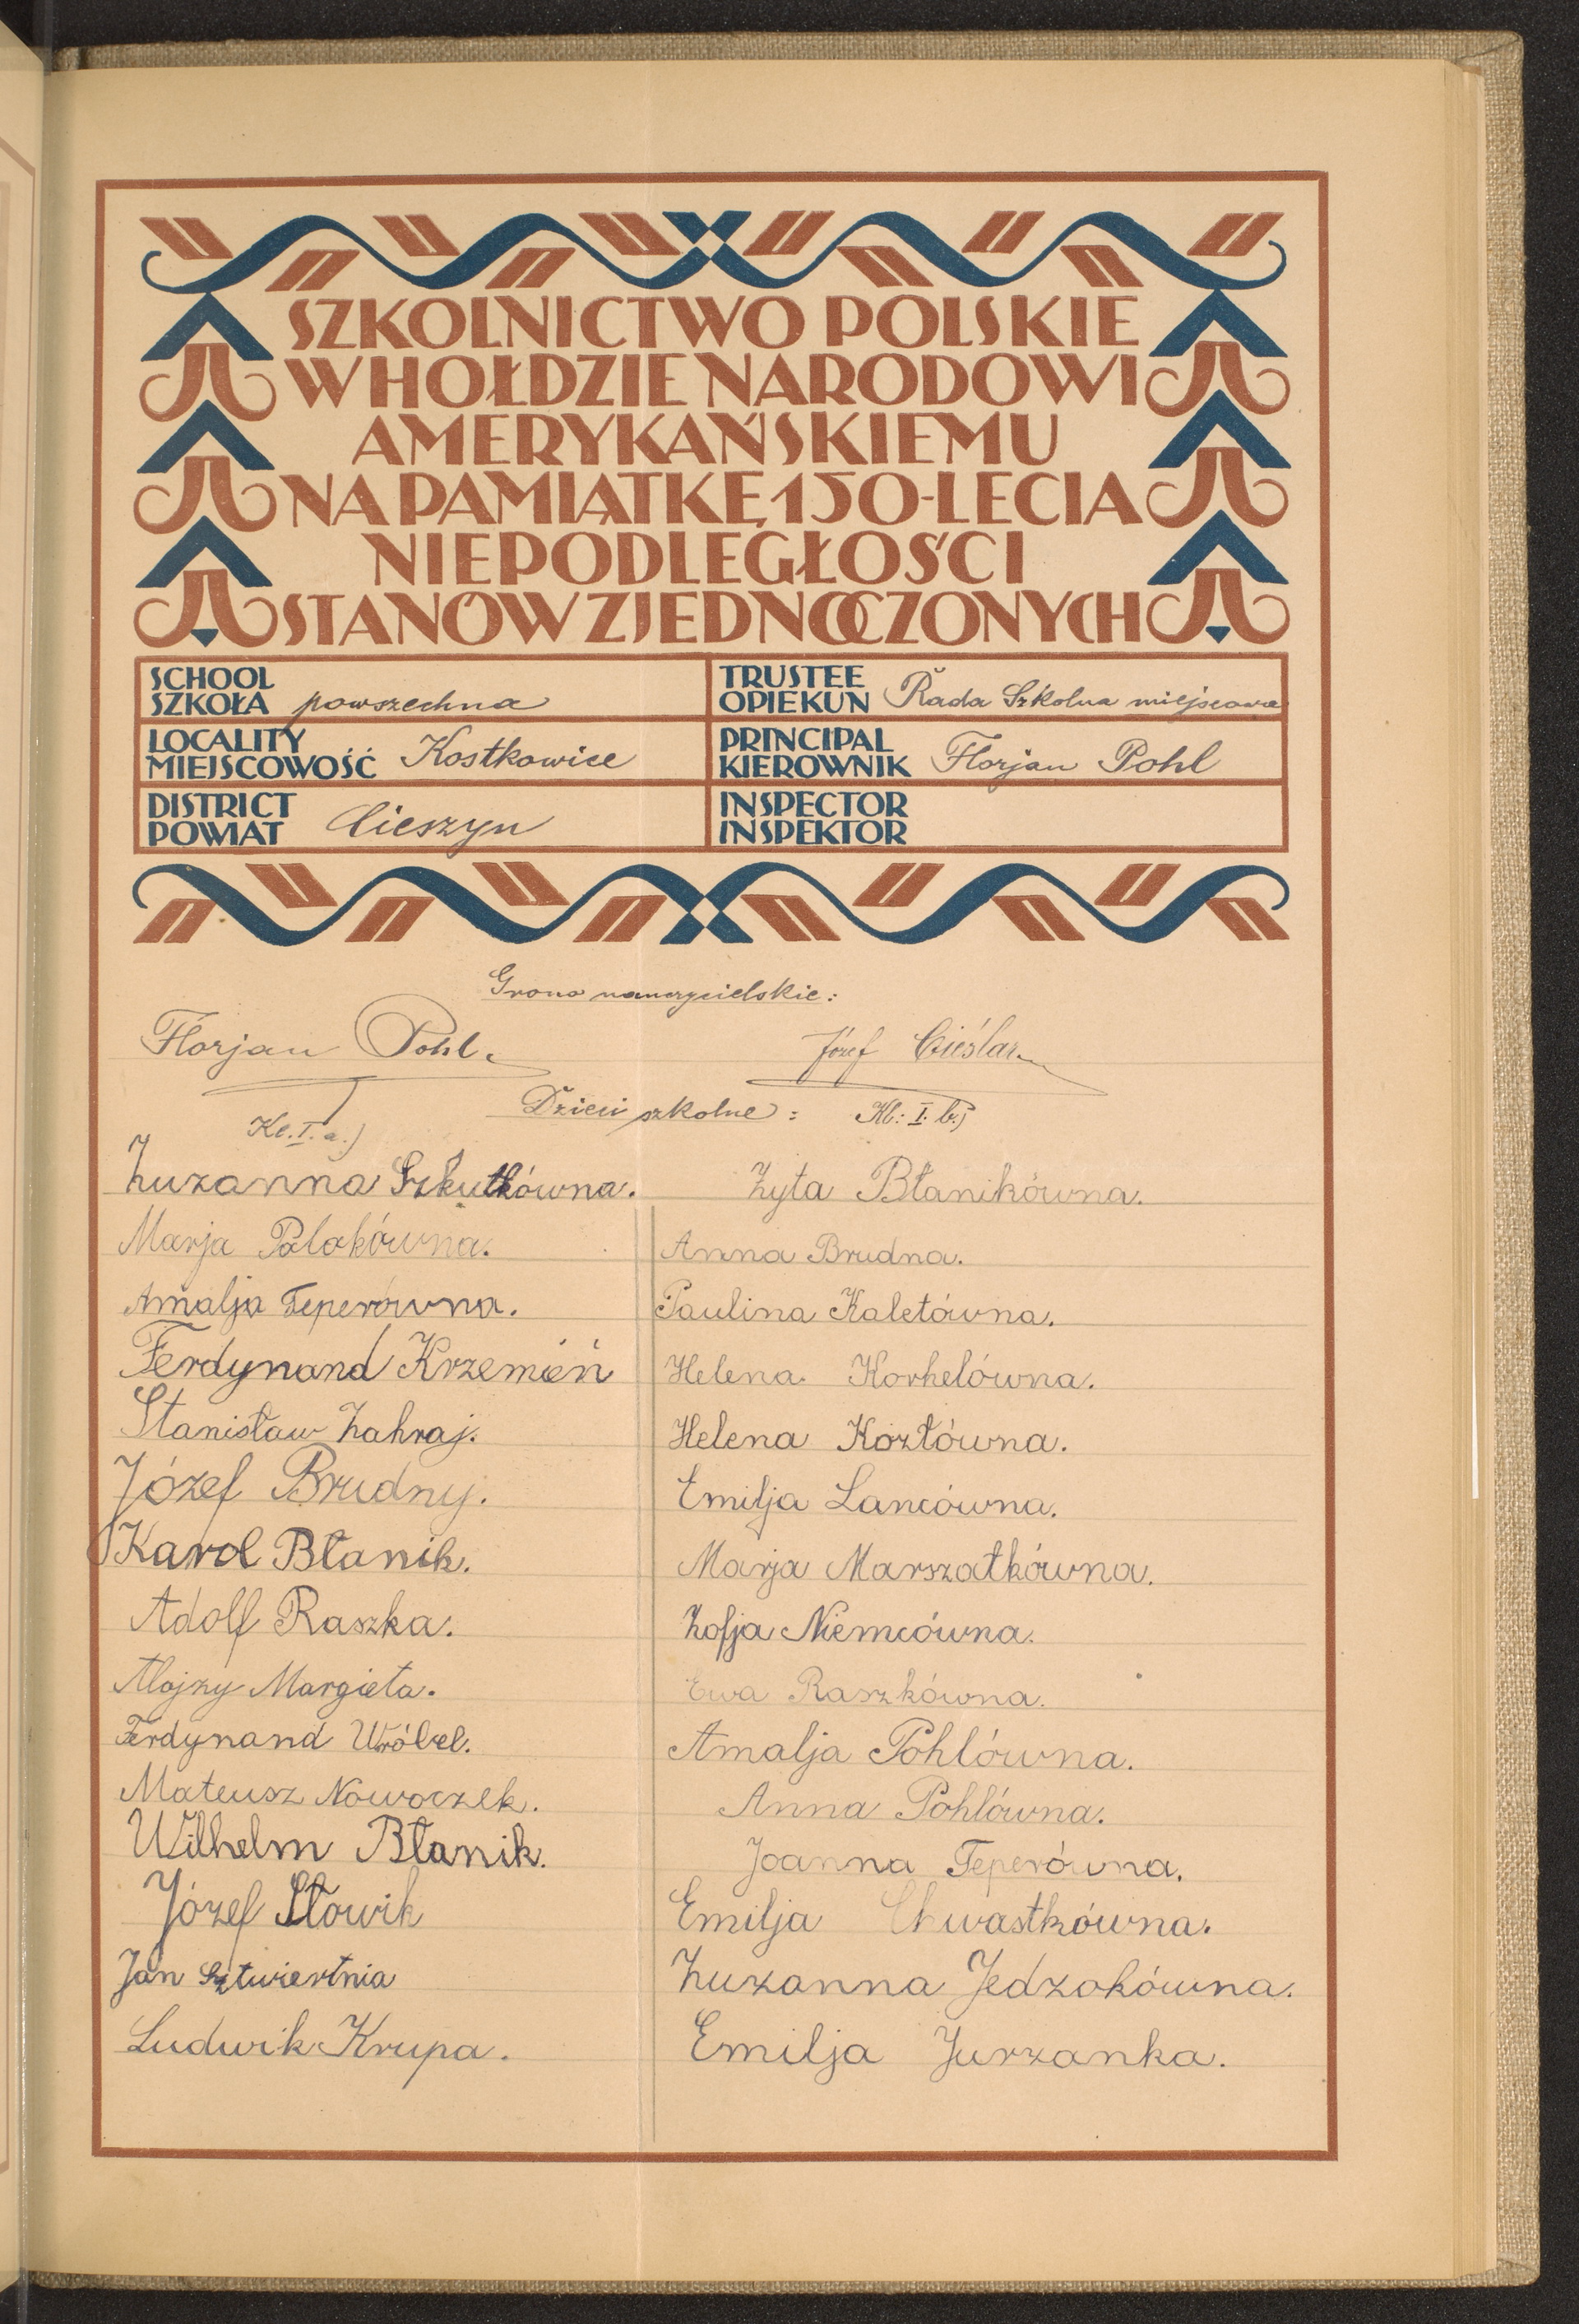 SZKOLNICTWO POLSKIE
W HOŁDZIE NARODOWI
AMERYKAŃSKIEMU
NA PAMIĄTKĘ 150-LECIA
NIEPODLEGŁOŚCI
STANÓW ZJEDNOCZONYCH
SCHOOL
SZKOŁA powszechna
TRUSTEE
OPIEKUN Rada Szkolna miejscowa
LOCALITY
MIEJSCOWOŚĆ Kostkowice
PRINCIPAL
KIEROWNIK Florjan Pohl
DISTRICT
POWIAT Cieszyn
INSPECTOR
INSPEKTOR
Grono nauczycielskie:
Florjan Pohl.
Józef Cieślar
Dzieci szkolne:
Kl. I. a.)
Zuzanna Szkutkówna.
Marja Polokówna.
Amalja Teperówna.
Ferdynand Krzemień
Stanisław Zahraj.
Józef Brudny.
Karol Błanik.
Adolf Raszka.
Alojzy Margieta.
Ferdynand Wróbel.
Mateusz Nowoczek.
Wilhelm Błanik.
Józef Słowik
Jan Sztwiertnia
Ludwik Krupa.
Kl: I. b.)
Zyta Błanikówna.
Anna Brudna.
Paulina Kaletówna.
Helena Korhelówna.
Helena Kozłówna.
Emilja Lancówna.
Marja Marszałkówna.
Zofja Niemcówna.
Ewa Raszkówna.
Amalja Pohlówna.
Anna Pohlówna.
Joanna Teperówna.
Emilja Chwastkówna.
Zuzanna Jedzokówna.
Emilja Jurzanka.